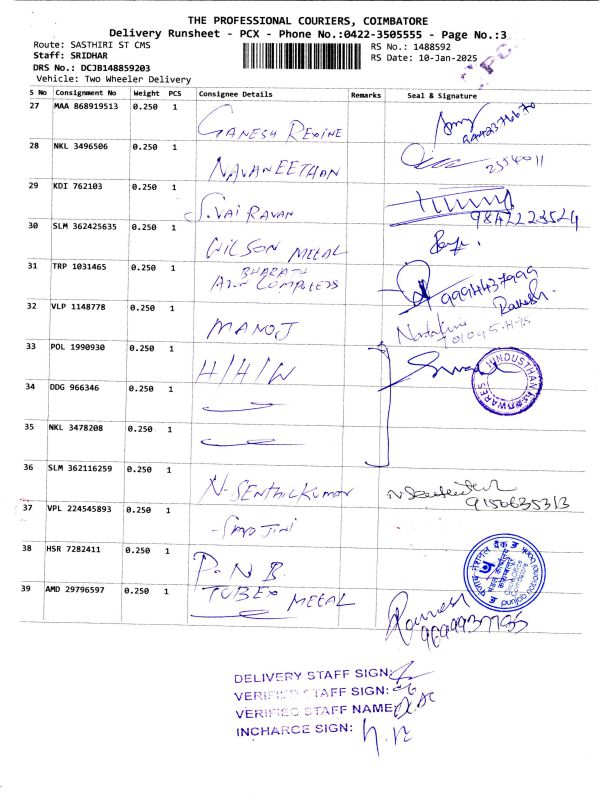 THE PROFESSIONAL COURIERS, COIMBATORE
Delivery Runsheet - PCX - Phone No.:0422-3505555 - Page No.:3
Route: SASTHIRI ST CMS
RS No.: 1488592
Staff: SRIDHAR
RS Date: 10-Jan-2025
DRS No.: DCJB148859203
Vehicle: Two Wheeler Delivery
S No Consignment No Weight PCS Consignee Details Remarks Seal & Signature
27 MAA 868919513 0.250 1 GANESH REXINE
28 NKL 3496506 0.250 1 NAVANEETHAN
29 KDI 762103 0.250 1 9842223524
30 SLM 362425635 0.250 1 WILSON METAL
31 TRP 1031465 0.250 1 BHARATH COMPUTERS 9994437999
32 VLP 1148778 0.250 1 MANOJ
33 POL 1990930 0.250 1 H/H/W HINDUSTHAN HARDWARES
34 DDG 966346 0.250 1
35 NKL 3478208 0.250 1
36 SLM 362116259 0.250 1 N-SENTHILKUMAR 9150635313
37 VPL 224545893 0.250 1
38 HSR 7282411 0.250 1 P.N.B. punjab national bank
39 AMD 29796597 0.250 1 TUBEX METAL Ramesh
DELIVERY STAFF SIGN:
VERIFIED STAFF SIGN:
VERIFIED STAFF NAME:
INCHARGE SIGN: